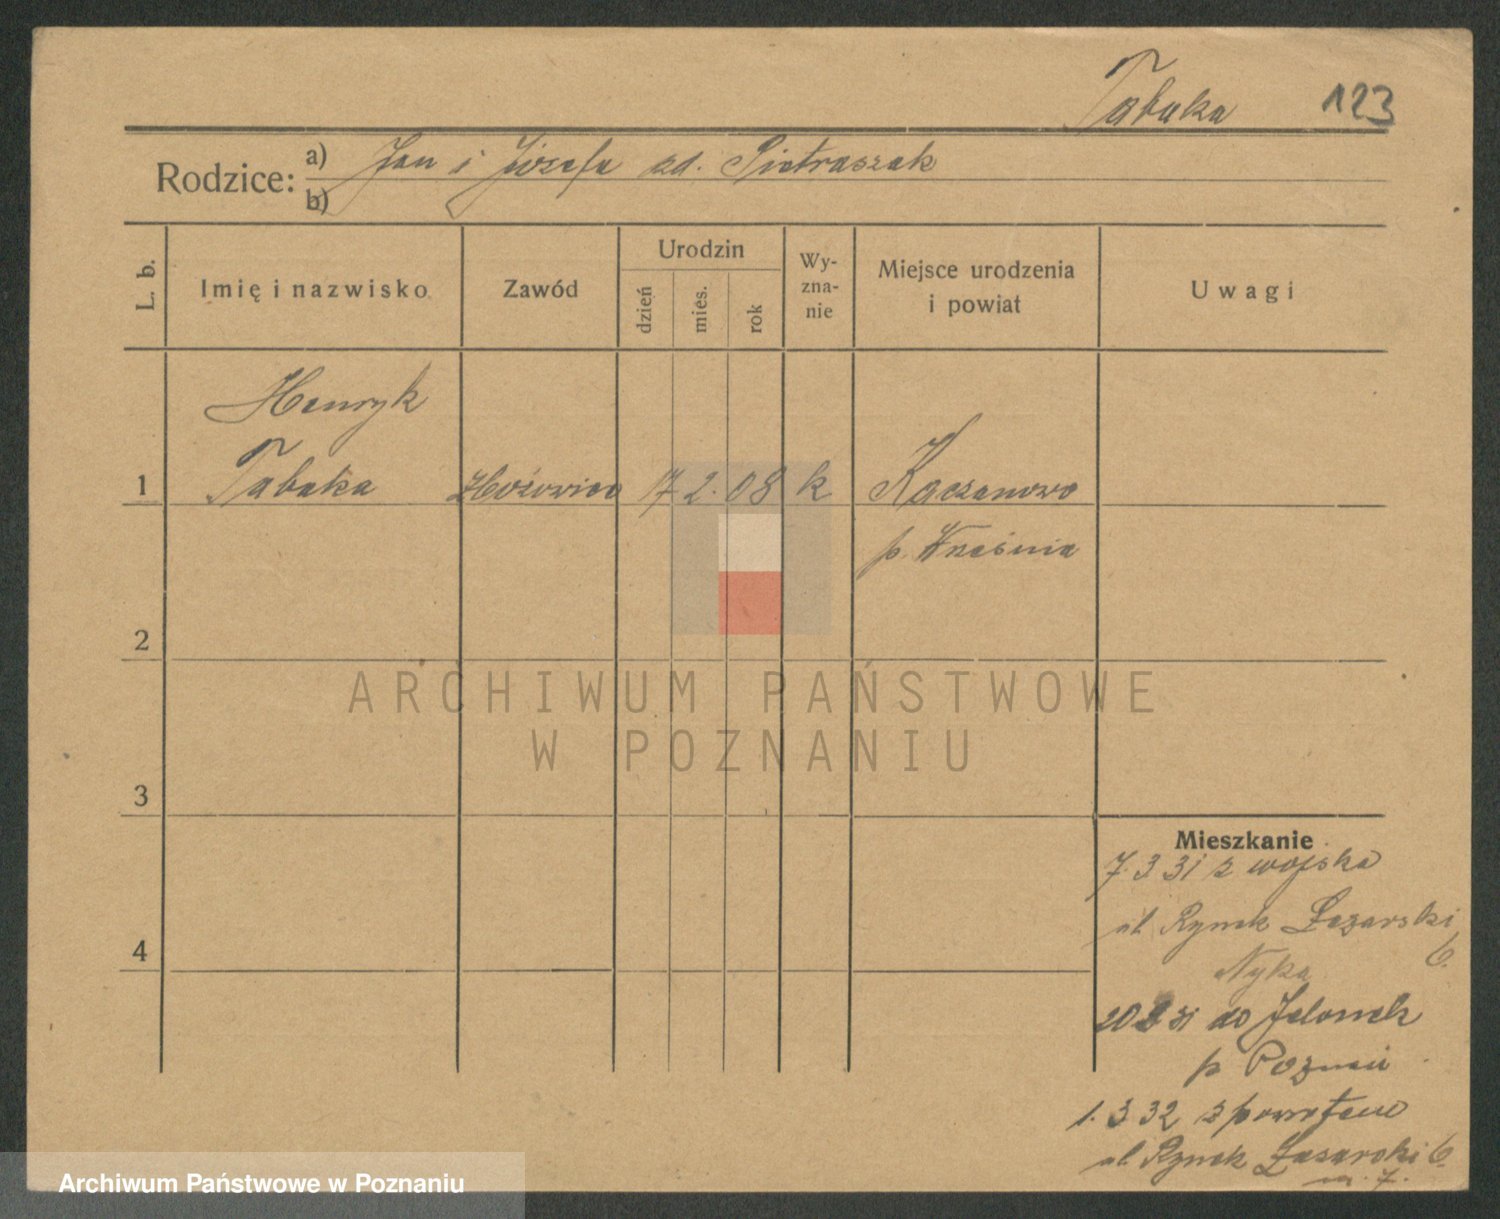 Tabaka 123
Rodzice: a) Jan i Józefa zd. Pietraszak
b)
L. b. Imię i nazwisko Zawód Urodzin dzień mies. rok Wyznanie Miejsce urodzenia i powiat Uwagi
Henryk
1 Tabaka 17 2. 08 k Kaczanowo
p. Września
2
ARCHIWUM PAŃSTWOWE
W POZNANIU
3
Mieszkanie
7. 3 31 z wojska
ul Rynek Łazarski
6.
Nyka
20 31 do Jelonek
p Poznań
4
1. 3 32 z powrotem
ul Rynek Łazarski 6.
m. 7.
Archiwum Państwowe w Poznaniu